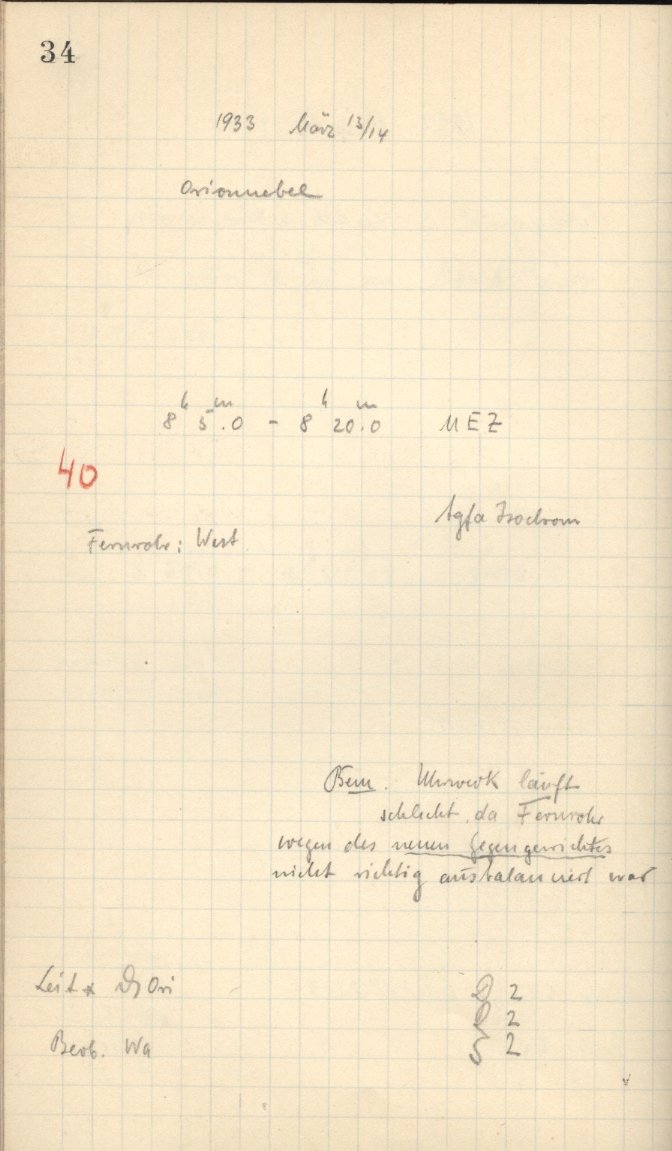 34
1933 März 13/14
Orionnebel
8h 5m.0 - 8h 20m.0 MEZ
40
Agfa Isochrom
Fernrohr: West
Bem. Uhrwerk läuft
schlecht, da Fernrohr
wegen des neuen Gegengewichtes
nicht richtig ausbalanciert war
Leit * ϑ Ori
2
2
Beob. Wa
S 2